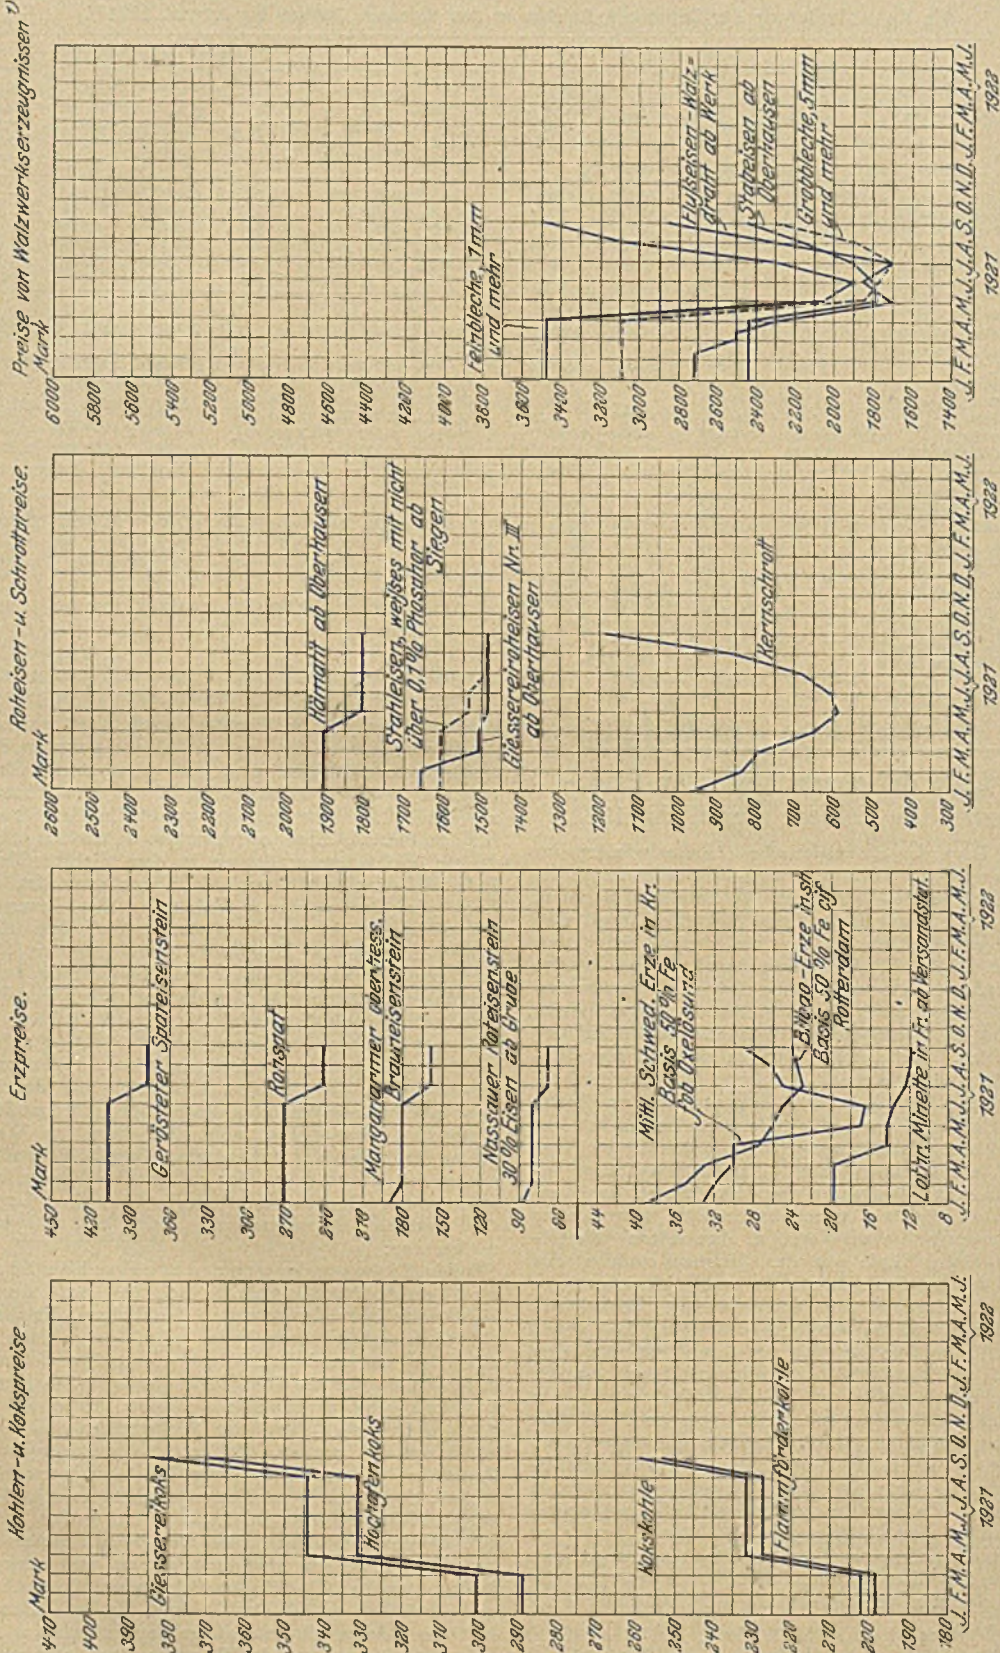 Kohlen-u. Kokspreise
Mark
410
400
390
380
370
360
350
340
330
320
310
300
290
280
270
260
250
240
230
220
210
200
190
180
Giessereikoks
Hochofenkoks
Kokskohle
Flammförderkohle
J.F.M.A.M.J.J.A.S.O.N.D.J.F.M.A.M.J.
1921 1922
Erzpreise.
Mark
450
420
390
360
330
300
270
240
210
180
150
120
90
60
44
40
36
32
28
24
20
16
12
8
Gerösteter Spateisenstein
Rohspat
Manganarmer oberhess.
Brauneisenstein
Nassauer Roteisenstein
30% Eisen ab Grube
Mittl. Schwed. Erze in Kr.
Basis 50% Fe
fob Oxelösund
Bilbao-Erze in sh
Basis 50% Fe cif
Rotterdam
Lothr. Minette in fr. ab Versandstat.
J.F.M.A.M.J.J.A.S.O.N.D.J.F.M.A.M.J.
1921 1922
Roheisen-u. Schrottpreise.
Mark
2600
2500
2400
2300
2200
2100
2000
1900
1800
1700
1600
1500
1400
1300
1200
1100
1000
900
800
700
600
500
400
300
Hämatit ab Oberhausen
Stahleisen, weißes mit nicht
über 0,1% Phosphor ab
Siegen
Giessereiroheisen Nr. III
ab Oberhausen
Kernschrott
J.F.M.A.M.J.J.A.S.O.N.D.J.F.M.A.M.J.
1921 1922
Preise von Walzwerkserzeugnissen 1)
Mark
6000
5800
5600
5400
5200
5000
4800
4600
4400
4200
4000
3800
3600
3400
3200
3000
2800
2600
2400
2200
2000
1800
1600
1400
Feinbleche, 1mm
und mehr
Flußeisen-Walz-
draht ab Werk
Stabeisen ab
Oberhausen
Grobbleche, 5mm
und mehr
J.F.M.A.M.J.J.A.S.O.N.D.J.F.M.A.M.J.
1921 1922